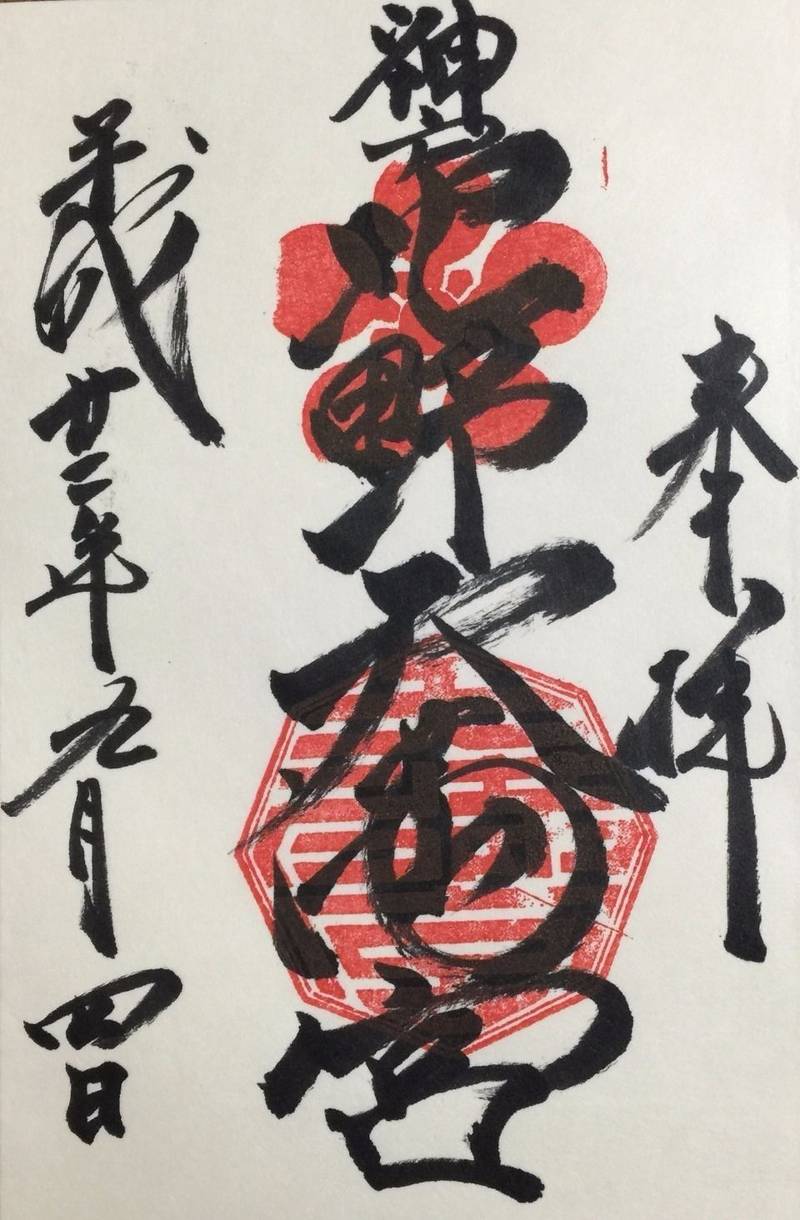 奉拝
神戸北野天満宮
平成廿二年九月四日